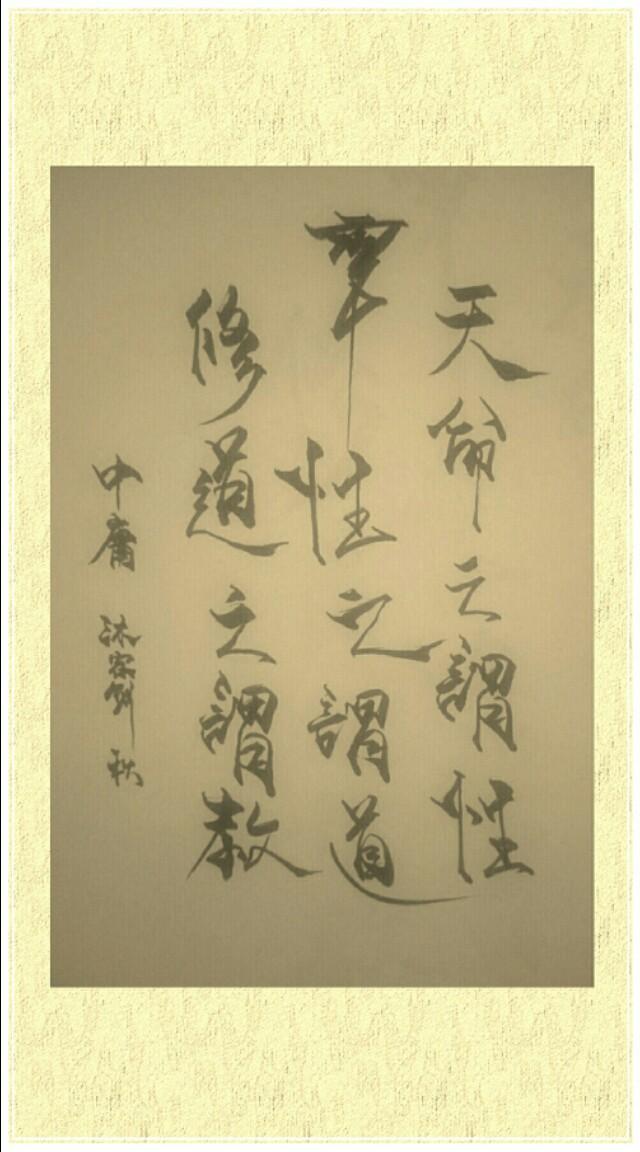 天命之謂性
率性之謂道
修道之謂教
中庸 秋